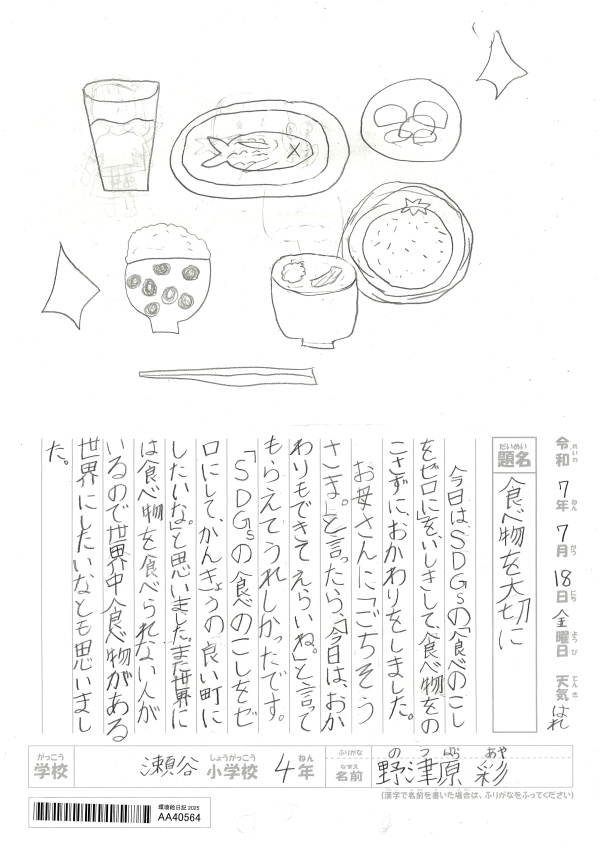 令和7年7月18日金曜日 天気 はれ
れいわ ねん がつ にち ようび てんき
だいめい
題名 食べ物を大切に
今日はSDGsの「食べのこし
をゼロに」を、いしきして、食べ物をの
こさずに、おかわりをしました。
お母さんに「ごちそう
さま。」と言ったら、「今日は、おか
わりもできてえらいね。」と言って
もらえてうれしかったです。
「SDGsの食べのこしをゼ
ロにして、かんきょうの良い町に
したいな。」と思いました。また世界に
は食べ物を食べられない人が
いるので世界中食べ物がある
世界にしたいなとも思いまし
た。
がっこう しょうがっこう ねん
学校 瀬谷 小学校 4年
ふりがな のつはら あや
なまえ
名前 野津原 彩
(漢字で名前を書いた場合は、ふりがなをふってください)
環境絵日記 2025
AA40564